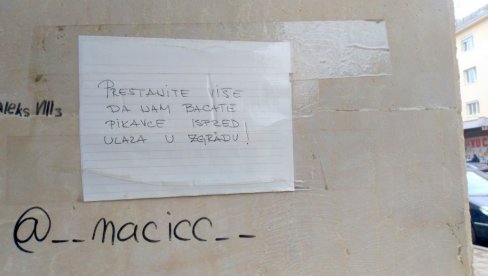 PRESTANITE VIŠE
DA NAM BACATE
PIKAVCE ISPRED
ULAZA U ZGRADU!
aleks VIII3
@__macicc__